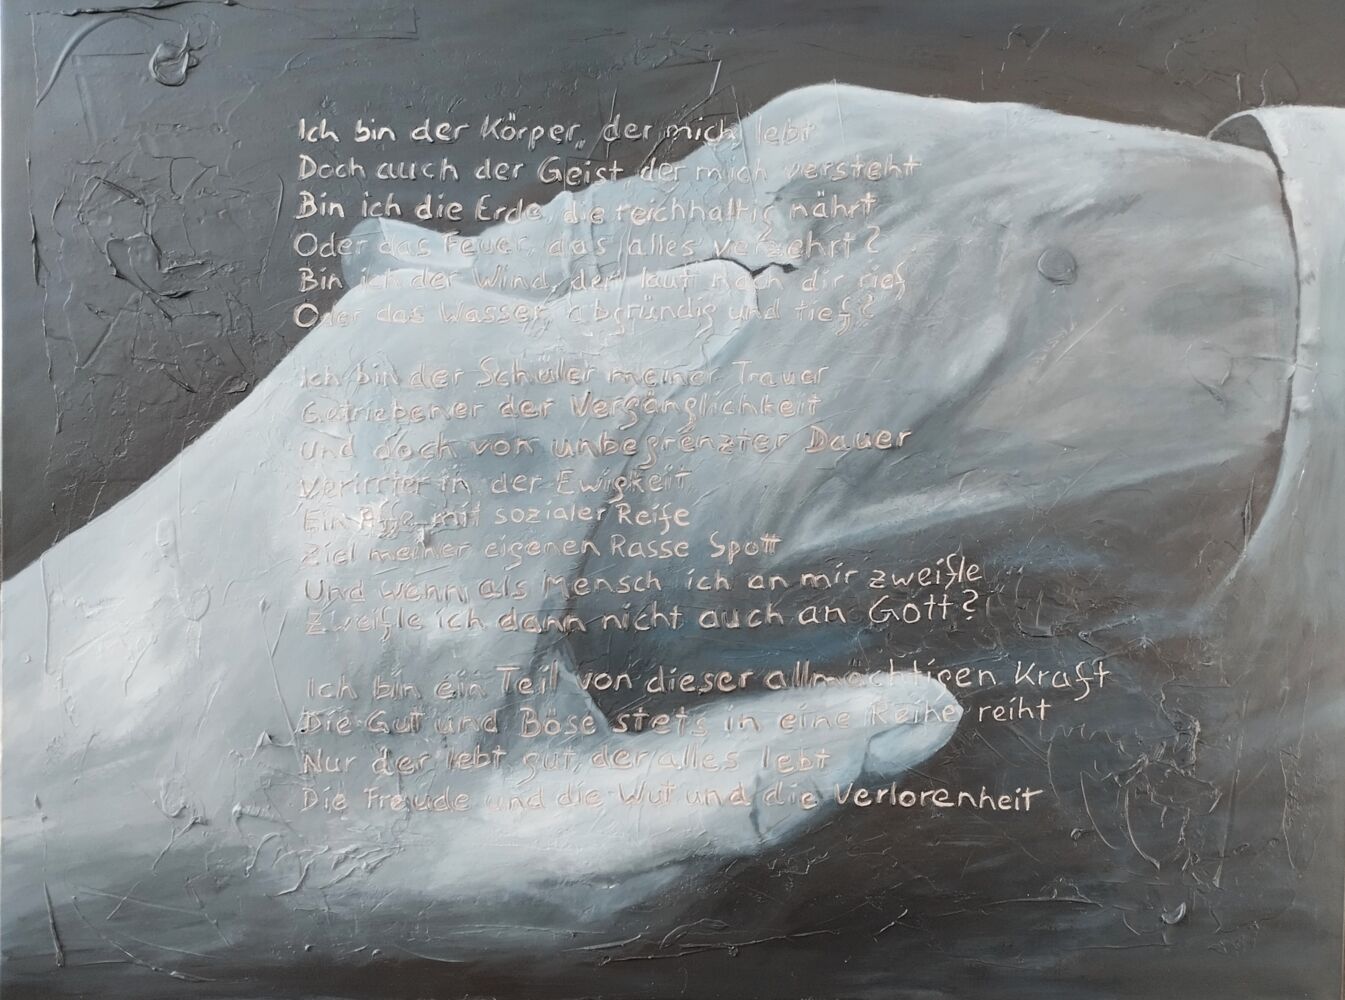 Ich bin der Körper, der mich lebt
Doch auch der Geist, der mich versteht
Bin ich die Erde, die reichhaltig nährt
Oder das Feuer, das alles verzehrt?
Bin ich der Wind, der laut nach dir rief
Oder das Wasser, abgründig und tief?
Ich bin der Schüler meiner Trauer
Getriebener der Vergänglichkeit
Und doch von unbegrenzter Dauer
Verirrter in der Ewigkeit
Ein Affe mit sozialer Reife
Ziel meiner eigenen Rasse Spott
Und wenn als Mensch ich an mir zweifle
Zweifle ich dann nicht auch an Gott?
Ich bin ein Teil von dieser allmächtigen Kraft
Die Gut und Böse stets in eine Reihe reiht
Nur der lebt gut, der alles lebt
Die Freude und die Wut und die Verlorenheit